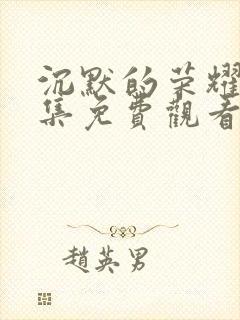 沉默的荣耀
集免費觀看
趙英男